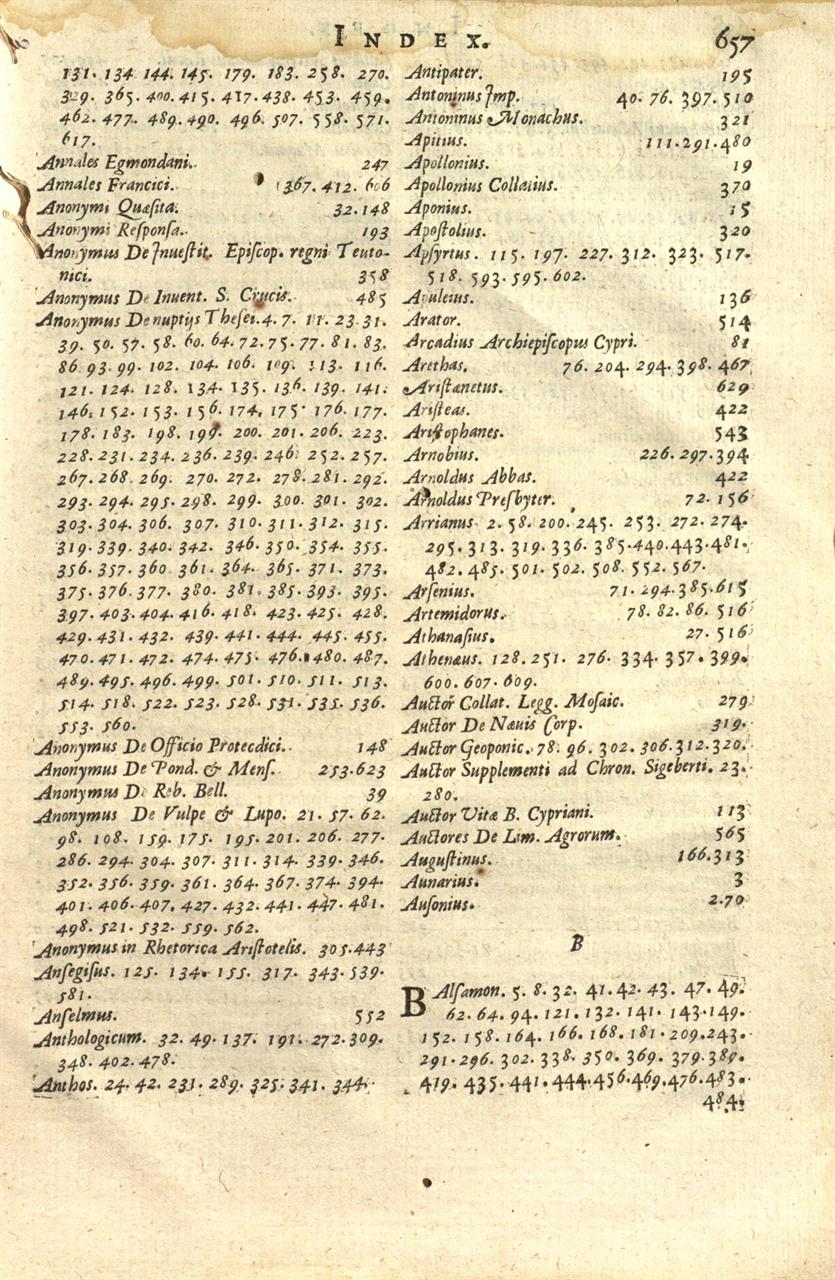 INDEX. 657
131. 134 144. 145. 179. 183. 258. 270.
329. 365. 400. 415. 417. 438. 453. 459.
462. 477. 489. 490. 496. 507. 558. 571.
617.
Annales Egmondani. 247
Annales Francici. 367. 412. 606
Anonymi Quæsita. 32. 148
Anonymi Responsa. 193
Anonymus De Inuestit. Episcop. regni Teuto-
nici. 358
Anonymus De Inuent. S. Crucis. 485
Anonymus De nuptijs Thesei. 4. 7. 11. 23. 31.
39. 50. 57. 58. 60. 64. 72. 75. 77. 81. 83.
86. 93. 99. 102. 104. 106. 109. 113. 116.
121. 124. 128. 134. 135. 136. 139. 141.
146. 152. 153. 156. 174. 175. 176. 177.
178. 183. 198. 199. 200. 201. 206. 223.
228. 231. 234. 236. 239. 246. 252. 257.
267. 268. 269. 270. 272. 278. 281. 292.
293. 294. 295. 298. 299. 300. 301. 302.
303. 304. 306. 307. 310. 311. 312. 315.
319. 339. 340. 342. 346. 350. 354. 355.
356. 357. 360 361. 364. 365. 371. 373.
375. 376. 377. 380. 381. 385. 393. 395.
397. 403. 404. 416. 418. 423. 425. 428.
429. 431. 432. 439. 441. 444. 445. 455.
470. 471. 472. 474. 475. 476. 480. 487.
489. 495. 496. 499. 501. 510. 511. 513.
514. 518. 522. 523. 528. 531. 535. 536.
553. 560.
Anonymus De Officio Protecdici. 148
Anonymus De Pond. & Mens. 253. 623
Anonymus De Reb. Bell. 39
Anonymus De Vulpe & Lupo. 21. 57. 62.
98. 108. 159. 175. 195. 201. 206. 277.
286. 294. 304. 307. 311. 314. 339. 346.
352. 356. 359. 361. 364. 367. 374. 394.
401. 406. 407. 427. 432. 441. 447. 481.
498. 521. 532. 559. 562.
Anonymus in Rhetorica Aristotelis. 305. 443
Ansegisus. 125. 134. 155. 317. 343. 539.
581.
Anselmus. 552
Anthologicum. 32. 49. 137. 191. 272. 309.
348. 402. 478.
Anthos. 24. 42. 231. 289. 325. 341. 344.
Antipater. 195
Antoninus Imp. 40. 76. 397. 510
Antoninus Monachus. 321
Apitius. 111. 291. 480
Apollonius. 19
Apollonius Collatius. 370
Aponius. 15
Apostolius. 320
Apsyrtus. 115. 197. 227. 312. 323. 517.
518. 593. 595. 602.
Apuleius. 136
Arator. 514
Arcadius Archiepiscopus Cypri. 81
Arethas. 76. 204. 294. 398. 467
Aristænetus. 629
Aristeas. 422
Aristophanes. 543
Arnobius. 226. 297. 394
Arnoldus Abbas. 422
Arnoldus Presbyter. 72. 156
Arrianus 2. 58. 200. 245. 253. 272. 274.
295. 313. 319. 336. 385. 440. 443. 481.
482. 485. 501. 502. 508. 552. 567.
Arsenius. 71. 294. 385. 615
Artemidorus. 78. 82. 86. 516
Athanasius. 27. 516
Athenæus. 128. 251. 276. 334. 357. 399.
600. 607. 609.
Auctor Collat. Legg. Mosaic. 279
Auctor De Nauis Corp. 319.
Auctor Geoponic. 78. 96. 302. 306. 312. 320.
Auctor Supplementi ad Chron. Sigeberti. 23.
280.
Auctor Vitæ B. Cypriani. 113
Auctores De Lim. Agrorum. 565
Augustinus. 166. 313
Aunarius. 3
Ausonius. 2. 70
B
BAlsamon. 5. 8. 32. 41. 42. 43. 47. 49.
62. 64. 94. 121. 132. 141. 143. 149.
152. 158. 164. 166. 168. 181. 209. 243.
291. 296. 302. 338. 350. 369. 379. 389.
419. 435. 441. 444. 456. 469. 476. 483.
484.